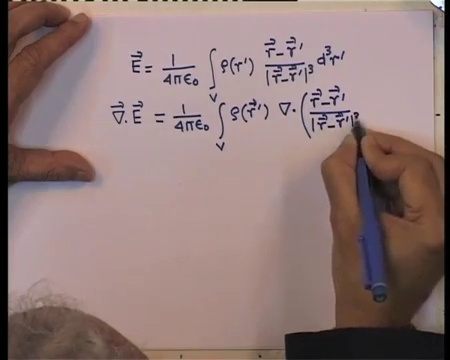 E⃗ = 1/4πε₀ ∫_V ρ(r') (r⃗ − r⃗')/|r⃗ − r⃗'|³ d³r'
∇⃗ · E⃗ = 1/4πε₀ ∫_V ρ(r⃗') ∇ · ( (r⃗ − r⃗')/|r⃗ − r⃗'|³